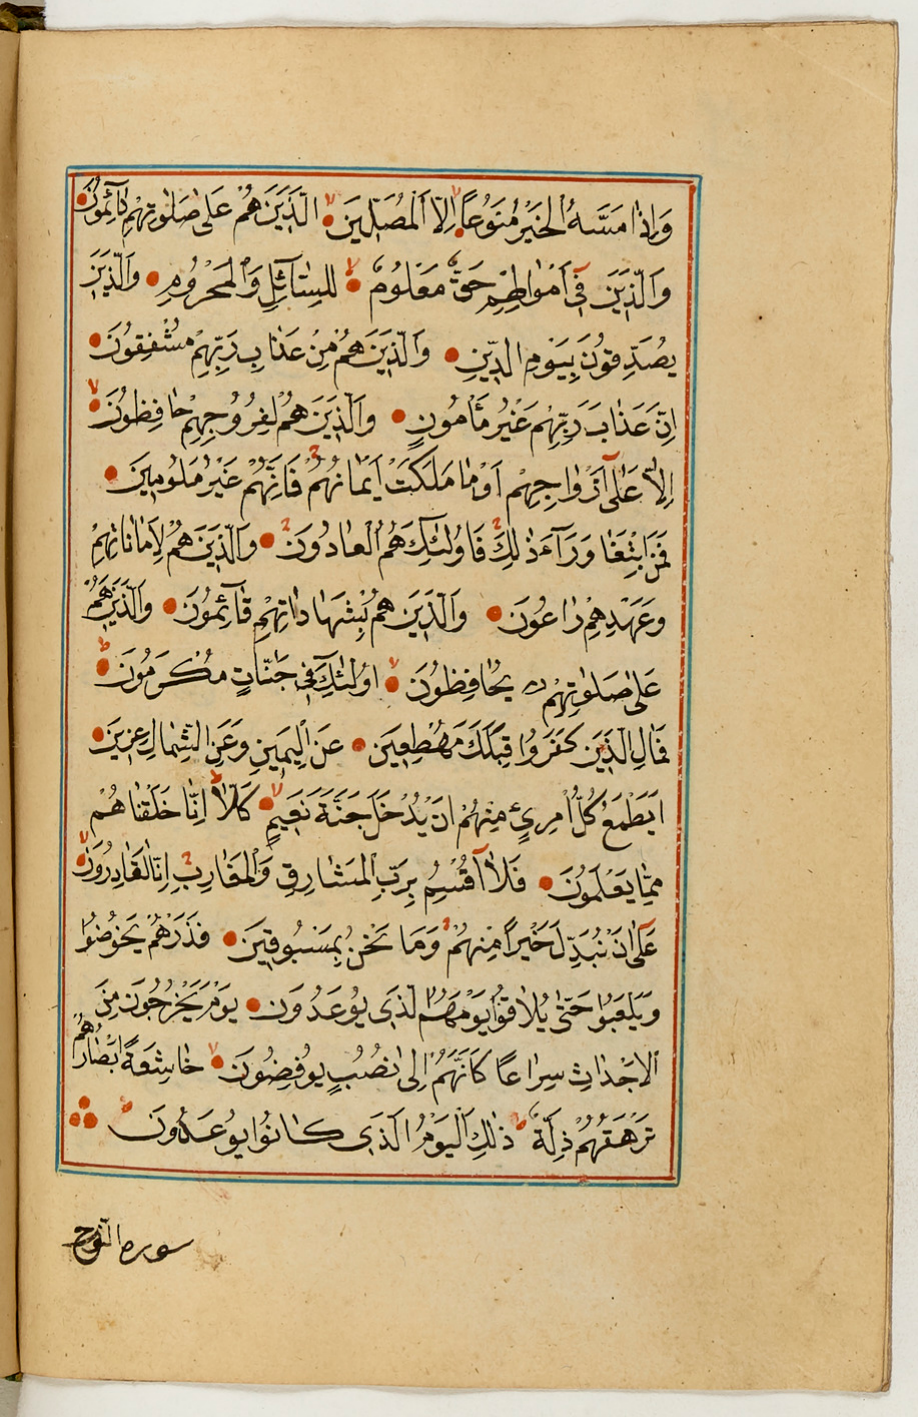 وَاِذَا مَسَّهُ الْخَيْرُ مَنُوعًا اِلَّا الْمُصَلِّينَ الَّذِينَ هُمْ عَلٰى صَلٰوتِهِمْ دَآئِمُونَ
وَالَّذِينَ فِى اَمْوَالِهِمْ حَقٌّ مَعْلُومٌ لِلسَّآئِلِ وَالْمَحْرُومِ وَالَّذِينَ
يُصَدِّقُونَ بِيَوْمِ الدِّينِ وَالَّذِينَ هُمْ مِنْ عَذَابِ رَبِّهِمْ مُشْفِقُونَ
اِنَّ عَذَابَ رَبِّهِمْ غَيْرُ مَأْمُونٍ وَالَّذِينَ هُمْ لِفُرُوجِهِمْ حَافِظُونَ
اِلَّا عَلٰى اَزْوَاجِهِمْ اَوْ مَا مَلَكَتْ اَيْمَانُهُمْ فَاِنَّهُمْ غَيْرُ مَلُومِينَ
فَمَنِ ابْتَغَا وَرَآءَ ذٰلِكَ فَاُولٰئِكَ هُمُ الْعَادُونَ وَالَّذِينَ هُمْ لِاَمَانَاتِهِمْ
وَعَهْدِهِمْ رَاعُونَ وَالَّذِينَ هُمْ بِشَهَادَاتِهِمْ قَآئِمُونَ وَالَّذِينَ هُمْ
عَلٰى صَلٰوتِهِمْ يُحَافِظُونَ اُولٰئِكَ فِى جَنَّاتٍ مُكْرَمُونَ
فَمَالِ الَّذِينَ كَفَرُوا قِبَلَكَ مُهْطِعِينَ عَنِ الْيَمِينِ وَعَنِ الشِّمَالِ عِزِينَ
اَيَطْمَعُ كُلُّ امْرِئٍ مِنْهُمْ اَنْ يُدْخَلَ جَنَّةَ نَعِيمٍ كَلَّا اِنَّا خَلَقْنَاهُمْ
مِمَّا يَعْلَمُونَ فَلَآ اُقْسِمُ بِرَبِّ الْمَشَارِقِ وَالْمَغَارِبِ اِنَّا لَقَادِرُونَ
عَلٰى اَنْ نُبَدِّلَ خَيْرًا مِنْهُمْ وَمَا نَحْنُ بِمَسْبُوقِينَ فَذَرْهُمْ يَخُوضُوا
وَيَلْعَبُوا حَتّٰى يُلَاقُوا يَوْمَهُمُ الَّذِى يُوعَدُونَ يَوْمَ يَخْرُجُونَ مِنَ
الْاَجْدَاثِ سِرَاعًا كَاَنَّهُمْ اِلٰى نُصُبٍ يُوفِضُونَ خَاشِعَةً اَبْصَارُهُمْ
تَرْهَقُهُمْ ذِلَّةٌ ذٰلِكَ الْيَوْمُ الَّذِى كَانُوا يُوعَدُونَ
سوره النوح